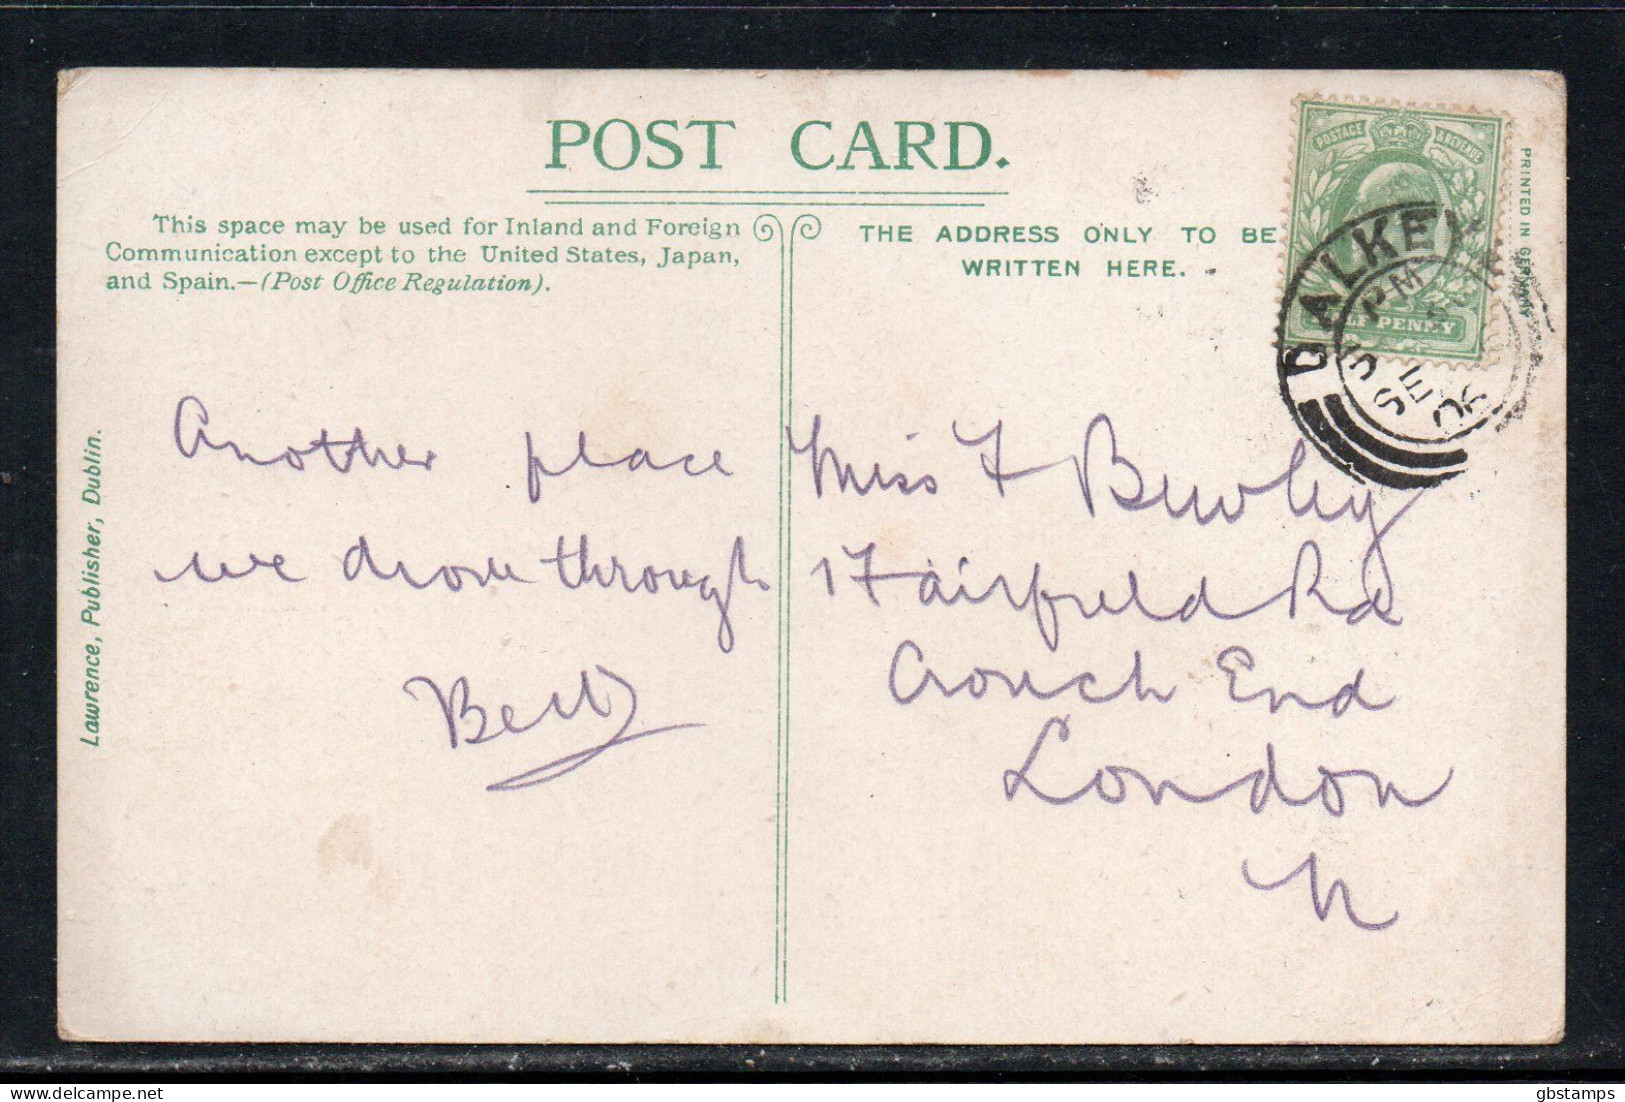 POST CARD.
This space may be used for Inland and Foreign
Communication except to the United States, Japan,
and Spain.—(Post Office Regulation).
THE ADDRESS ONLY TO BE
WRITTEN HERE.
POSTAGE & REVENUE
HALF PENNY
DALKEY
PM
SE
06
PRINTED IN GERMANY
Lawrence, Publisher, Dublin.
Another place
we drove through
Miss F
17 Fairfield Rd
Crouch End
London
N
delcampe.net
gbstamps